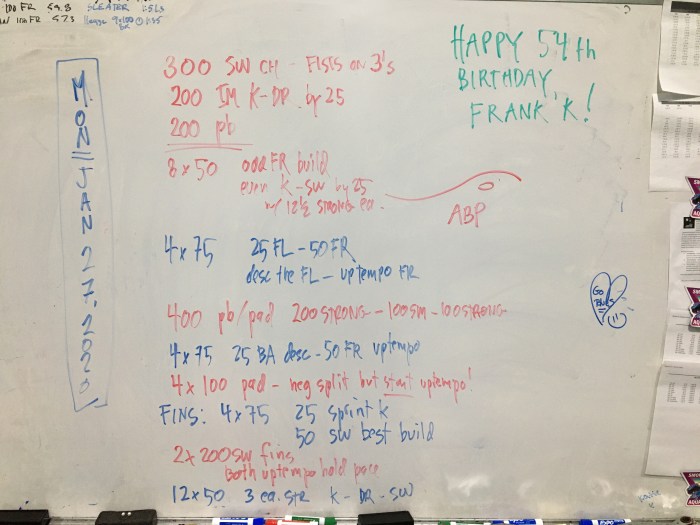 100 FR 59.8
57.3
300 SW CH - FISTS ON 3's
200 IM K-DR by 25
200 pb
8 x 50 odd FR build
even K-SW by 25
w/ 12½ strong ea.
ABP
4 x 75 25 FL - 50 FR
desc the FL - uptempo FR
400 pb/pad 200 STRONG - 100 SM - 100 STRONG
4 x 75 25 BA desc - 50 FR uptempo
4 x 100 pad - neg split but start uptempo!
FINS: 4 x 75 25 sprint k
50 SW best build
2 x 200 SW fins
Both uptempo hold pace
12 x 50 3 ea. str K - DR - SW
HAPPY 54th
BIRTHDAY,
FRANK K!
MON JAN 27, 2020
GO
BLUES
EXPO